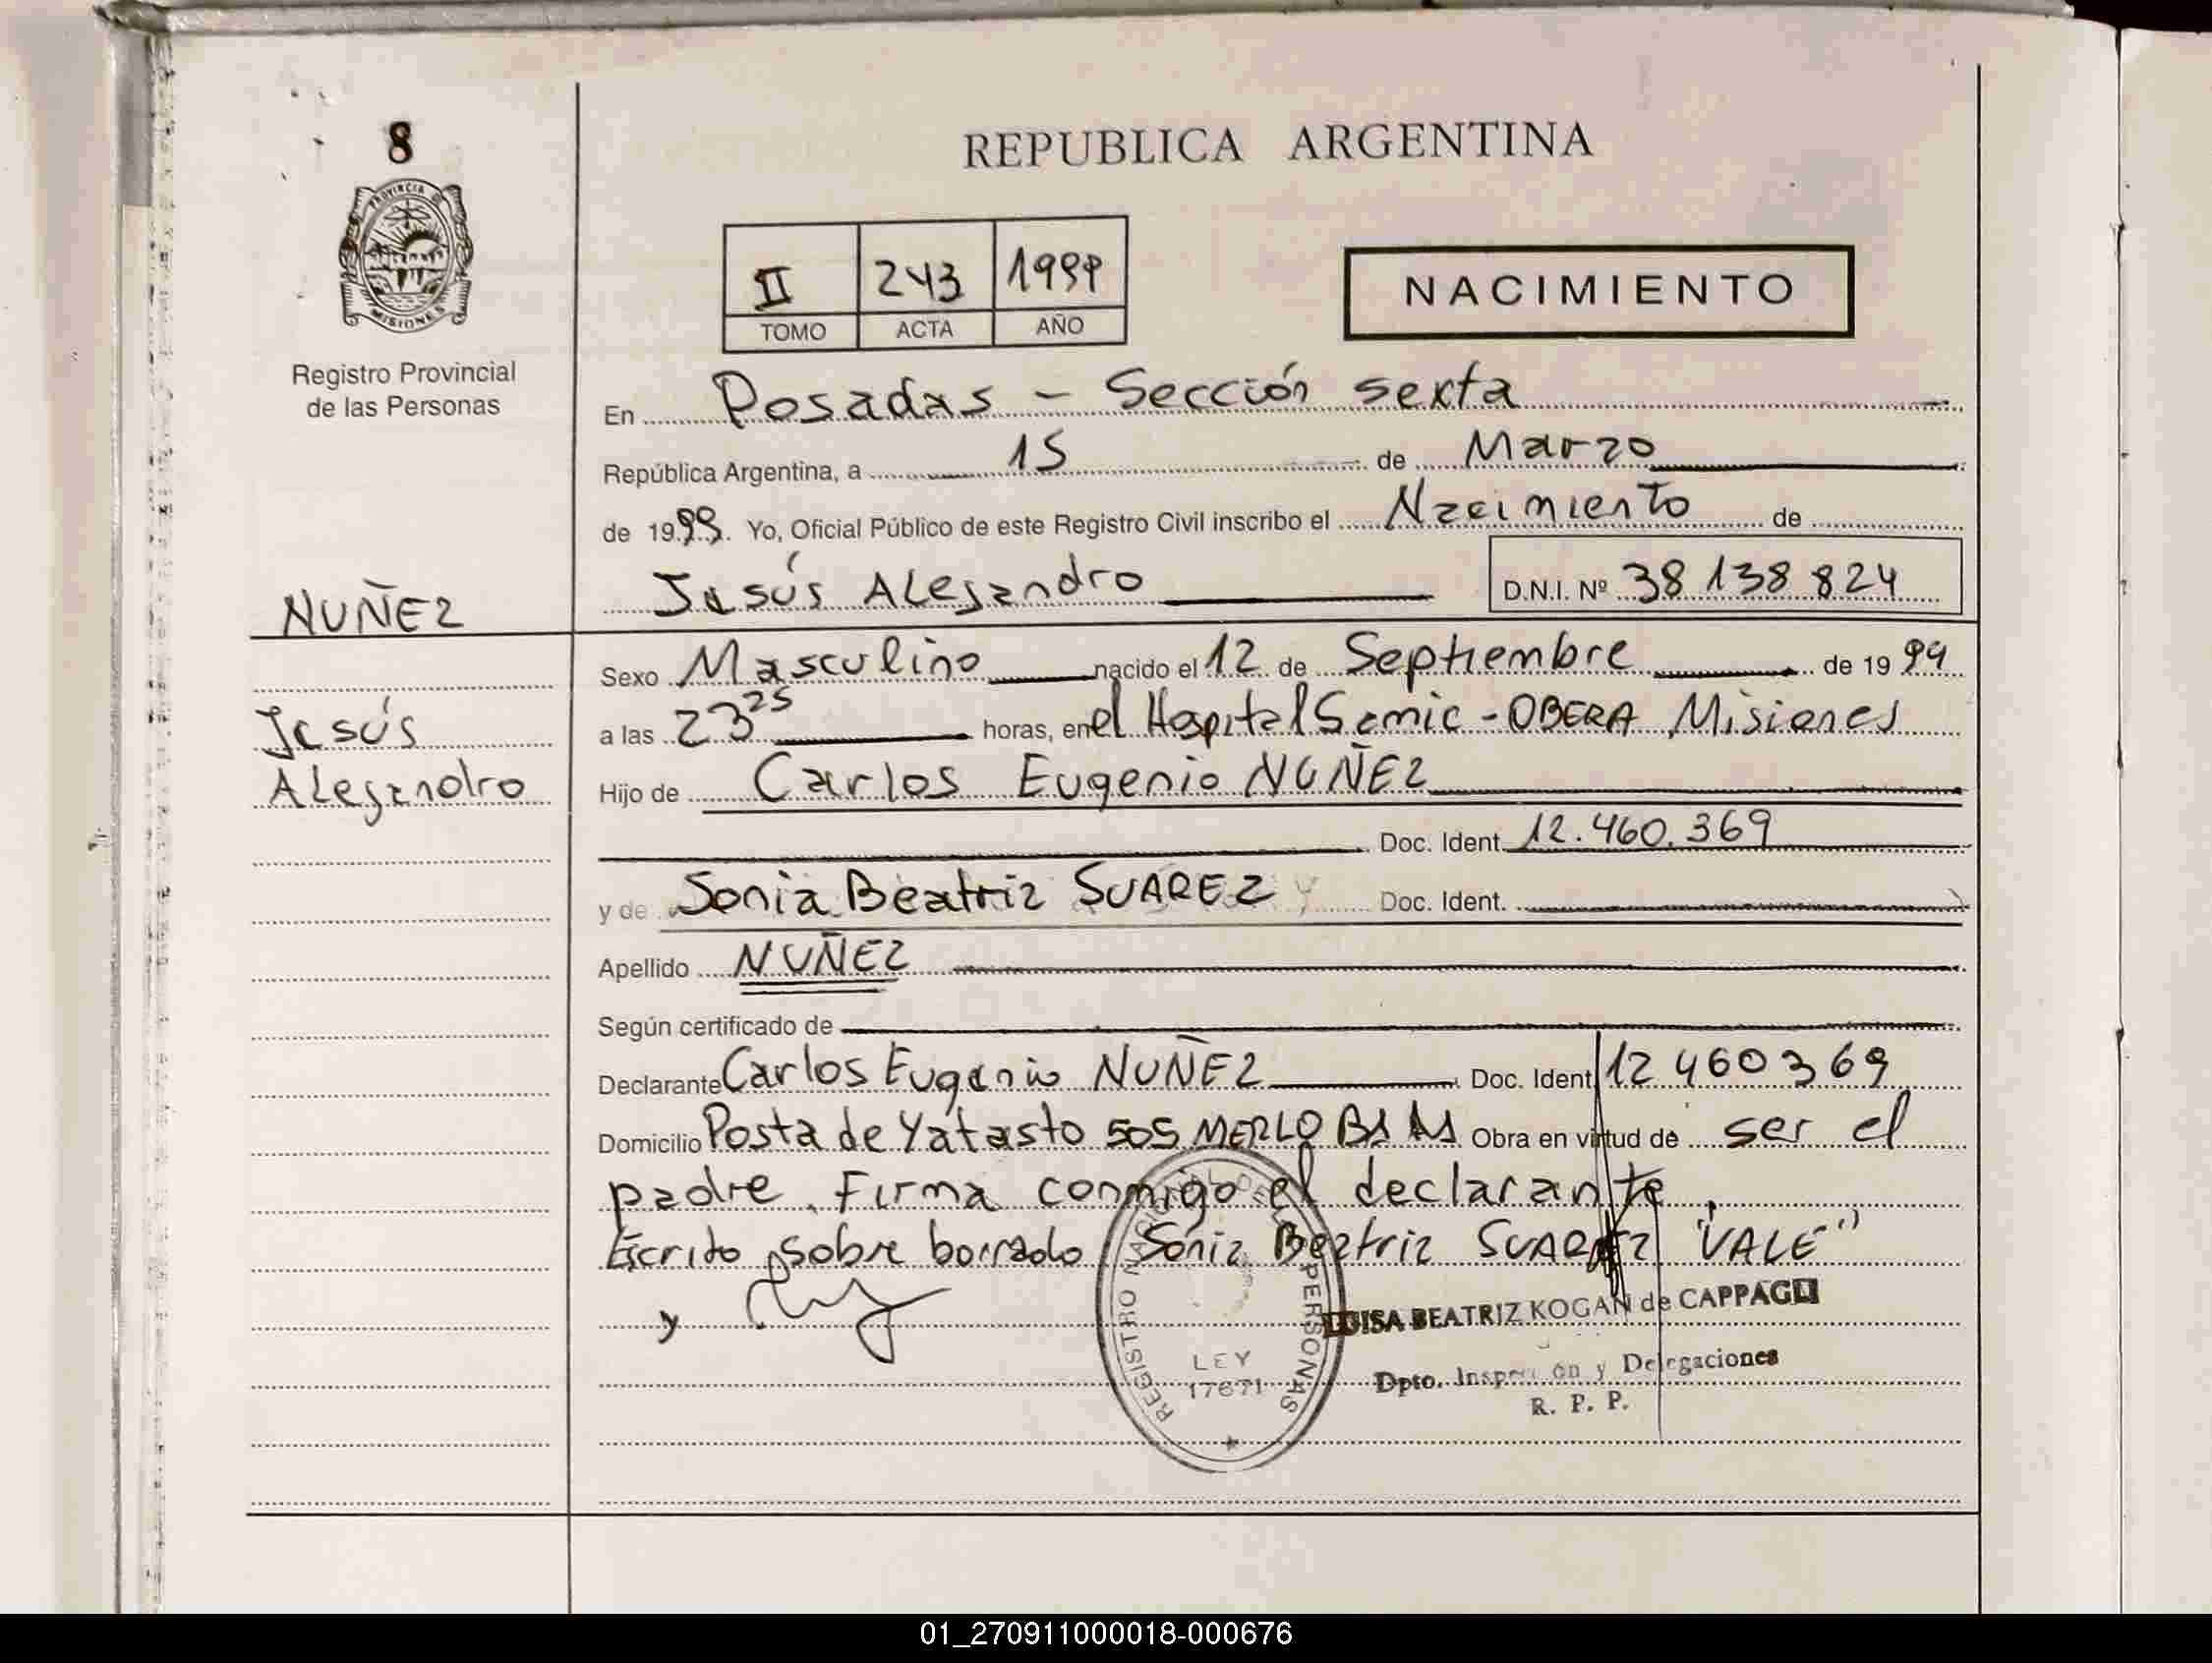 8
PROVINCIA
MISIONES
Registro Provincial
de las Personas
NUÑEZ
Jesús
Alejandro
REPUBLICA ARGENTINA
II 243 1999
TOMO ACTA AÑO
NACIMIENTO
En Posadas - Sección sexta
República Argentina, a 15 de Marzo
de 1999. Yo, Oficial Público de este Registro Civil inscribo el Nacimiento de
Jesús Alejandro D.N.I. Nº 38 138 824
Sexo Masculino nacido el 12 de Septiembre de 1994
a las 23 25 horas, en el Hospital Samic - OBERA Misiones
Hijo de Carlos Eugenio NUÑEZ
Doc. Ident. 12.460.369
y de Sonia Beatriz SUAREZ Doc. Ident.
Apellido NUÑEZ
Según certificado de
Declarante Carlos Eugenio NUÑEZ Doc. Ident. 12 460 369
Domicilio Posta de Yatasto 505 MERLO BS AS Obra en virtud de ser el
padre. Firma conmigo el declarante.
Escrito sobre borrado Sonia Beatriz SUAREZ "VALE"
y
REGISTRO NACIONAL DE PERSONAS
LEY
17671
LUISA BEATRIZ KOGAN de CAPPAGLI
Dpto. Inspección y Delegaciones
R. P. P.
01_270911000018-000676